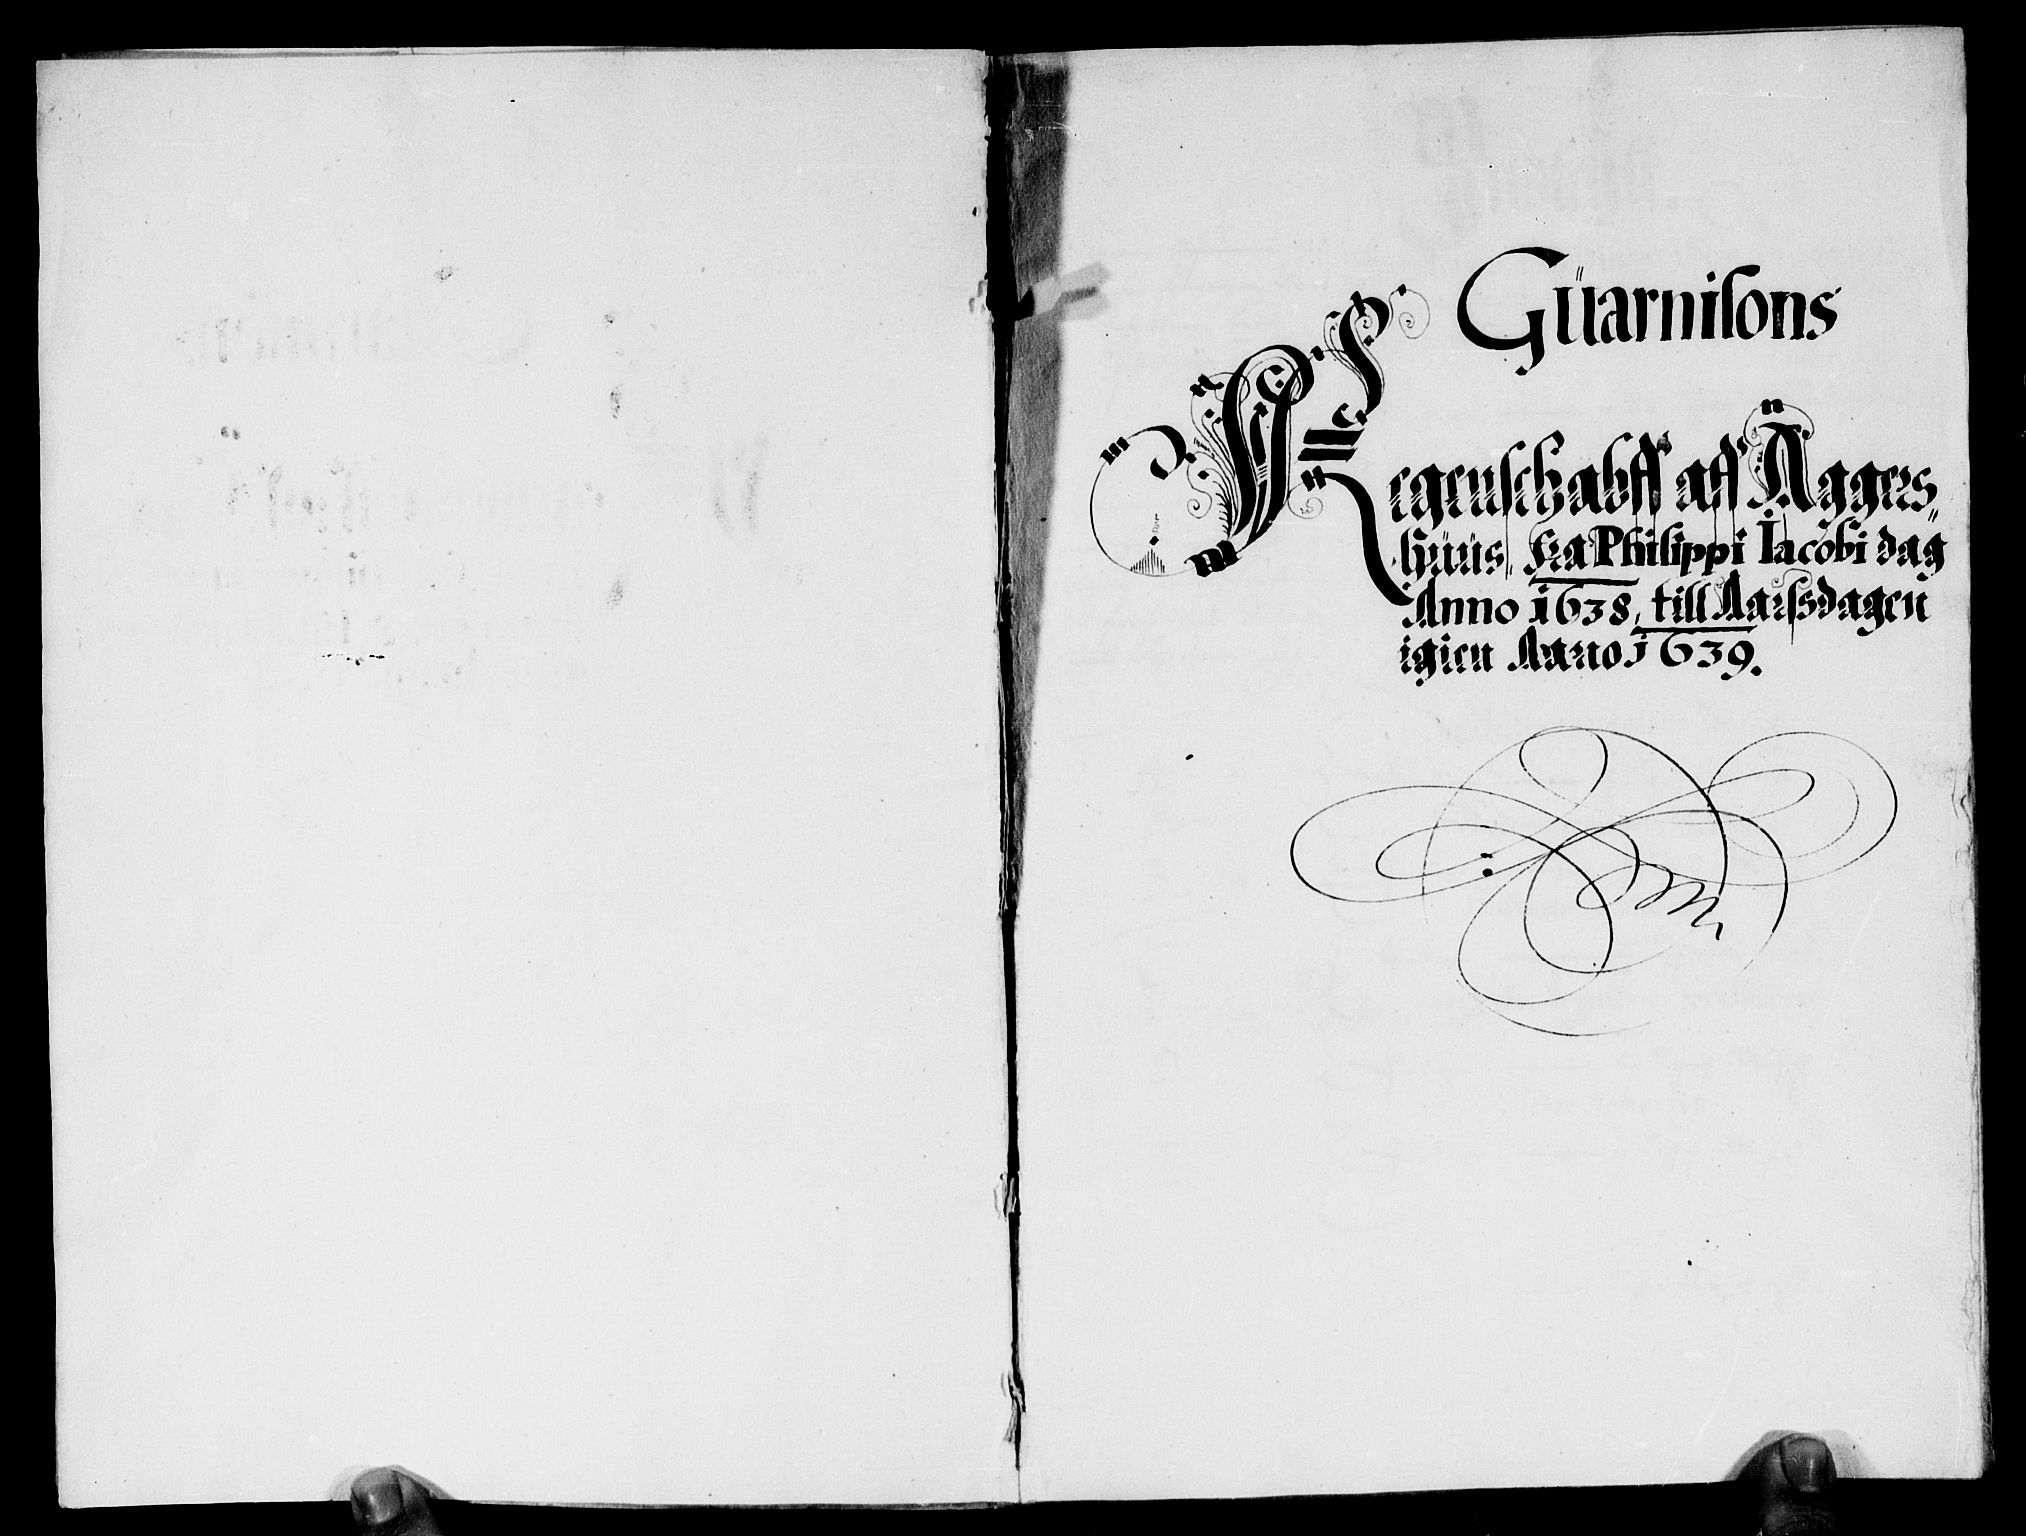 Güarnisons
Regenschabff aff Aggers„
hüüs, fra Philippi Iacobi dag
Anno 1638, till Aarssdagen
igien Anno 1639.